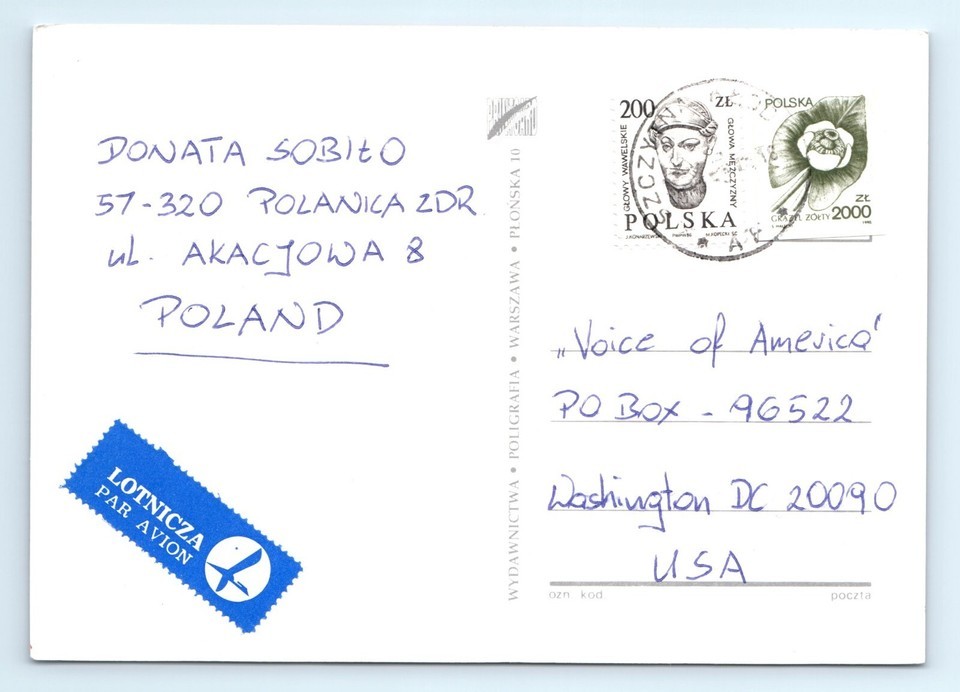 DONATA SOBIŁO
57-320 POLANICA ZDR
ul. AKACJOWA 8
POLAND
LOTNICZA
PAR AVION
WYDAWNICTWA • POLIGRAFIA • WARSZAWA • PŁOŃSKA 10
200 ZŁ
GŁOWY WAWELSKIE
GŁOWA MĘŻCZYZNY
POLSKA
POLSKA
GRĄŻEL ŻÓŁTY
ZŁ
2000
„Voice of America"
PO Box - 96522
Washington DC 20090
USA
ozn. kod.
poczta